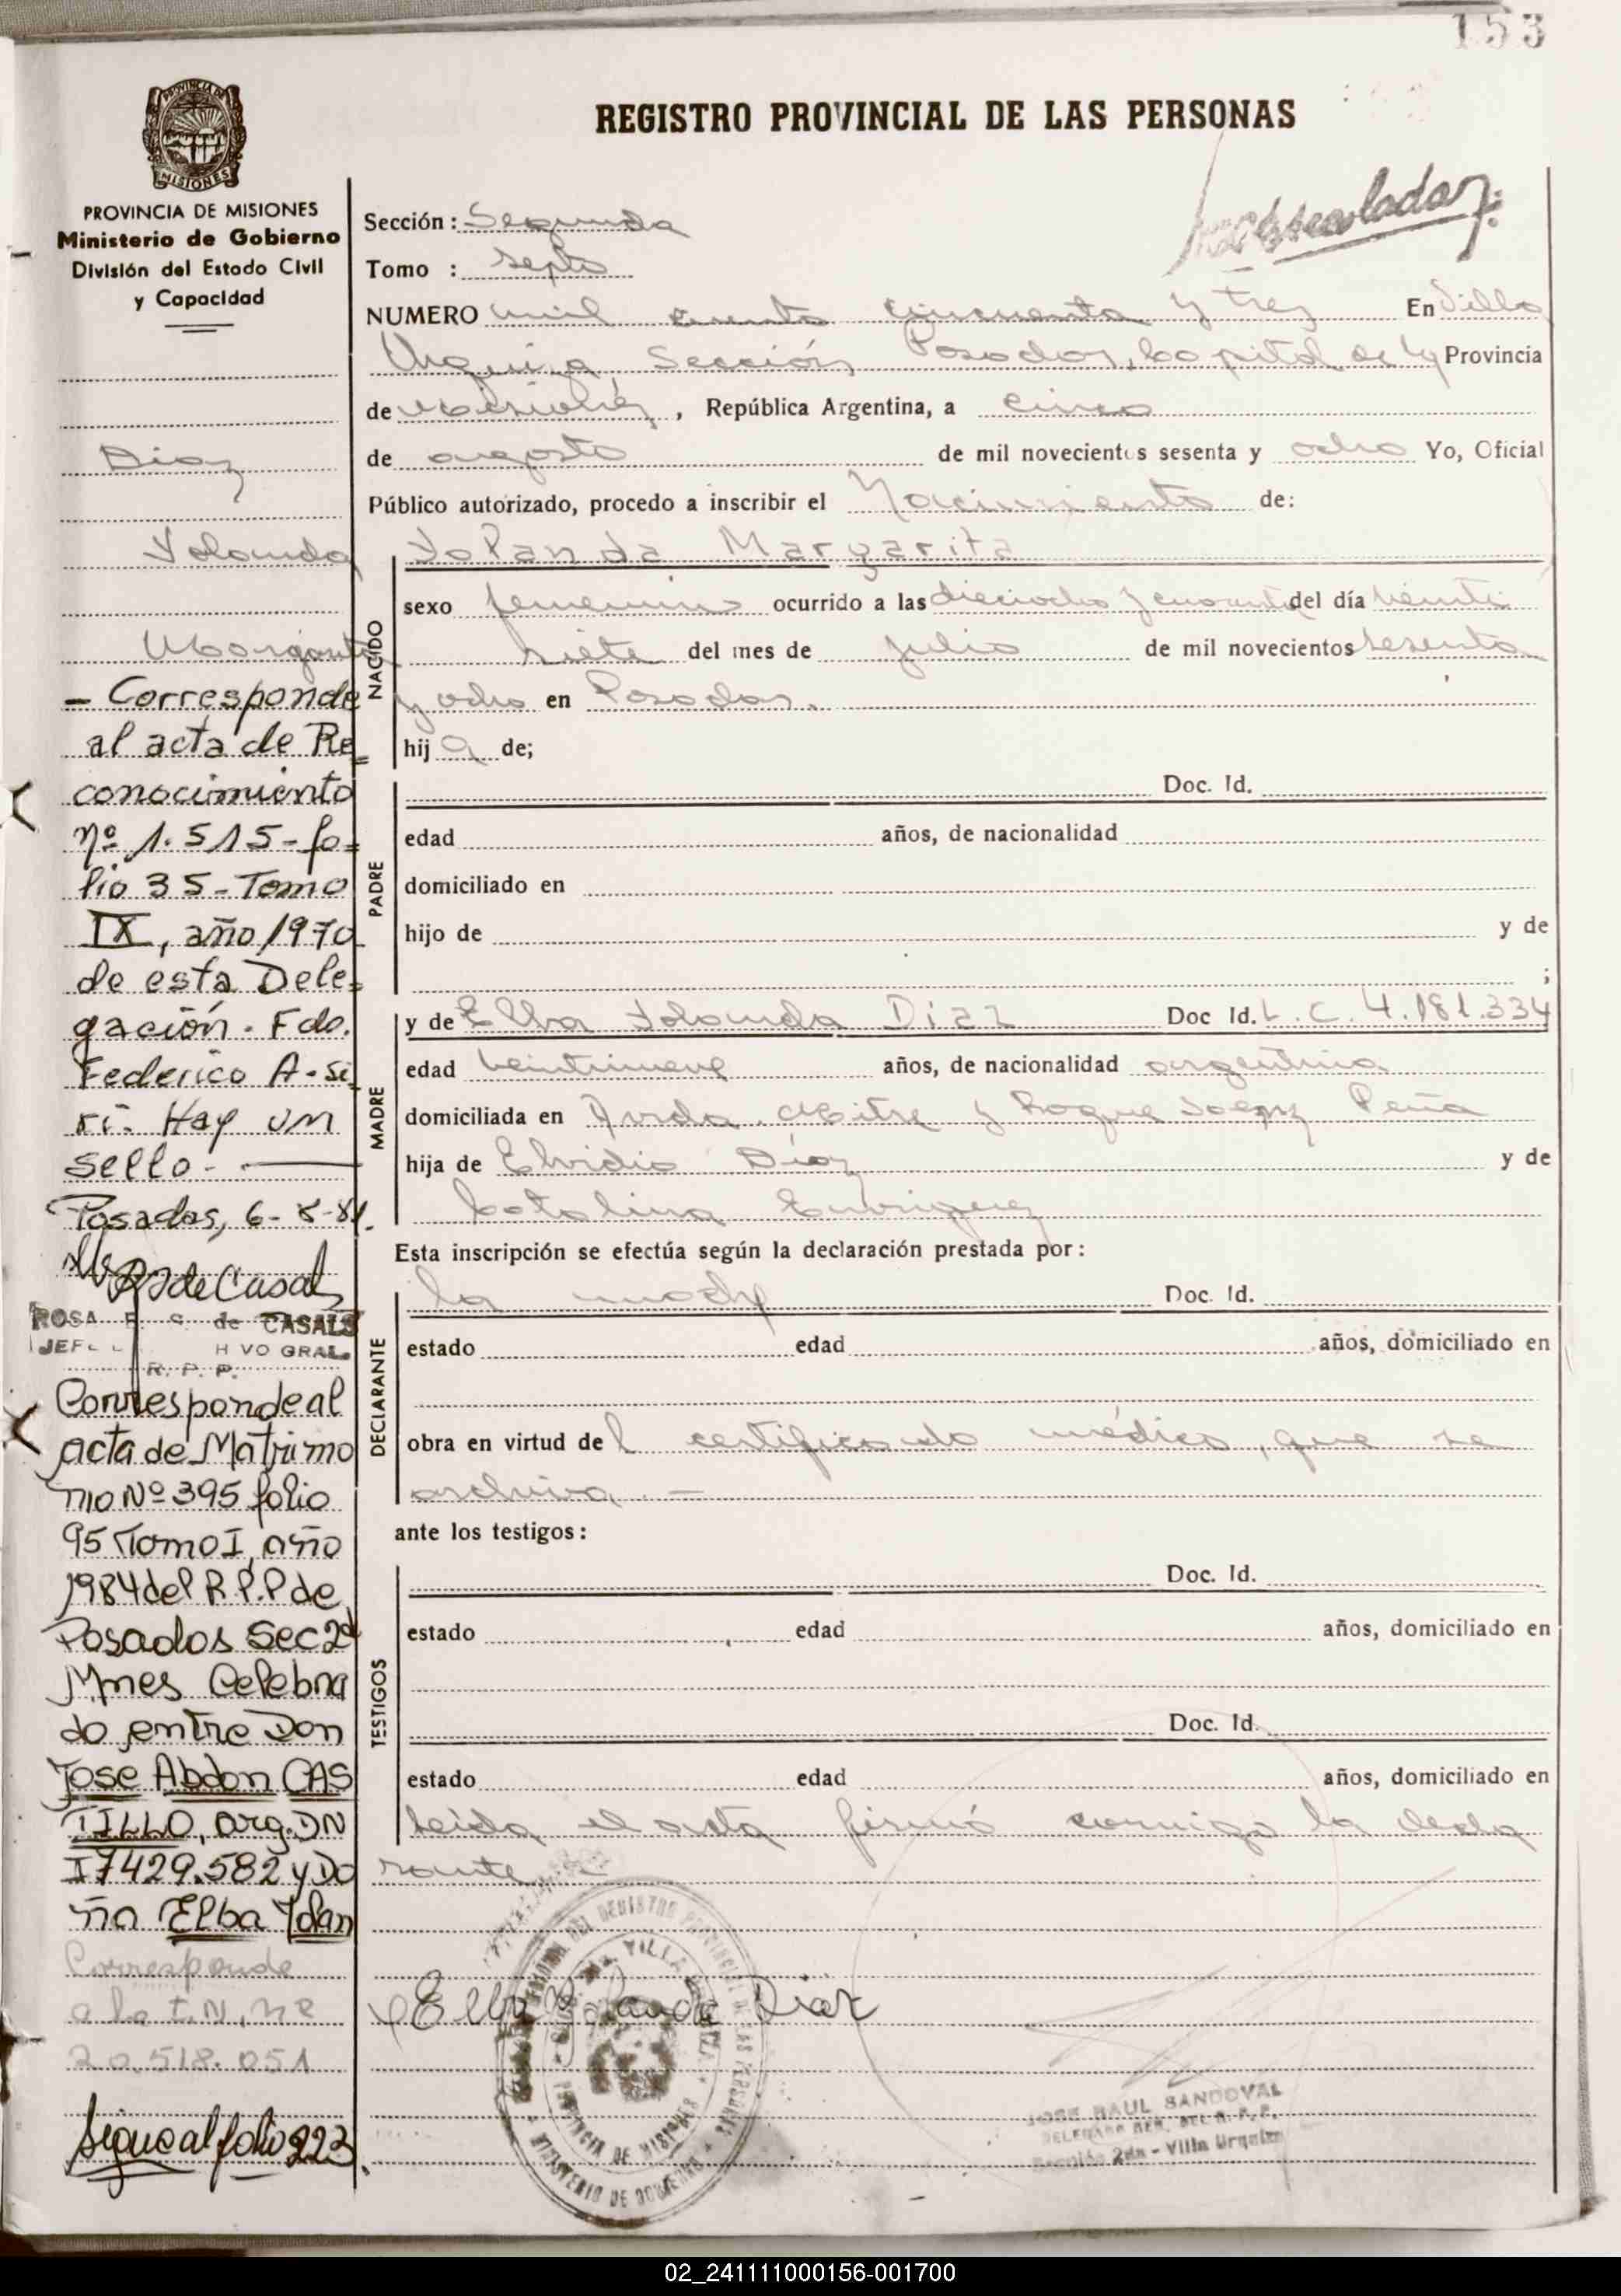 153
REGISTRO PROVINCIAL DE LAS PERSONAS
PROVINCIA DE
MISIONES
PROVINCIA DE MISIONES
Ministerio de Gobierno
División del Estado Civil
y Capacidad
Díaz
Yolanda
Margarita
- Corresponde
al acta de Re
conocimiento
nº 1.515 - fo-
lio 35 - Tomo
IX, año 1970
de esta Dele-
gación. Fdo.
Federico A. Si
ri. Hay un
sello. -
Posadas, 6-8-81.
ROSA E. S. de CASALS
R. P. P.
Corresponde al
acta de Matrimo
nio Nº 395 folio
95 Tomo I, año
1984 del R.P.P de
Posadas Sec 2d
Mnes Celebra
do entre Don
Jose Abdon CAS
TILLO, arg. DN
I 7429.582 y Do
ña Elba Yolan
Corresponde
a la I.N, nº
20.518.051
Sigue al folio 223
Sección: Segunda
Tomo : Septo
NUMERO mil ciento cincuenta y tres En Villa
Urquiza Sección Posadas, Capital de la Provincia
de Misiones, República Argentina, a cinco
de agosto de mil novecientos sesenta y ocho Yo, Oficial
Público autorizado, procedo a inscribir el Nacimiento de:
Yolanda Margarita
NACIDO
sexo femenino ocurrido a las dieciocho y cuarenta del día veinti
siete del mes de julio de mil novecientos sesenta
y ocho en Posadas.
hija de;
PADRE
Doc. Id.
edad años, de nacionalidad
domiciliado en
hijo de y de
;
MADRE
y de Elba Yolanda Díaz Doc Id. L.C. 4.181.334
edad veintinueve años, de nacionalidad argentina
domiciliada en Avda. Mitre y Roque Saenz Peña
hija de Elvidio Díaz y de
Catalina Enriquez
Esta inscripción se efectúa según la declaración prestada por:
DECLARANTE
la madre Doc. Id.
estado edad años, domiciliado en
obra en virtud del certificado médico, que se
archiva. -
ante los testigos:
TESTIGOS
Doc. Id.
estado edad años, domiciliado en
Doc. Id.
estado edad años, domiciliado en
Leída el acta firmó conmigo la decla
rante
Elba Yolanda Diaz
PROVINCIA DE MISIONES
MINISTERIO DE GOBIERNO
JOSE RAUL SANDOVAL
DELEGADO DEL R. P. P.
Sección 2da - Villa Urquiza
02_241111000156-001700